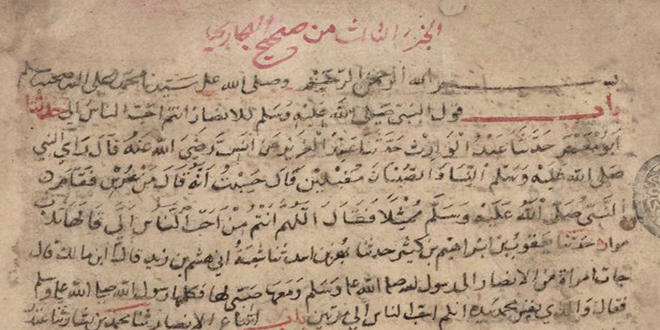 الجزء الثالث من صحيح البخاري
بسم الله الرحمن الرحيم وصلى الله على سيدنا محمد وصحبه وسلم
باب قول النبي صلى الله عليه وسلم للانصار انتم احب الناس الي حدثنا
ابو معمر حدثنا عبد الوارث حدثنا عبد العزيز عن انس رضي الله عنه قال راي النبي
صلى الله عليه وسلم النساء والصبيان مقبلين قال حسبت انه قال من عرس فقام
النبي صلى الله عليه وسلم ممثلا فقال اللهم انتم من احب الناس الي قالها ثلاث
مرار حدثنا يعقوب بن ابراهيم بن كثير حدثنا بهز بن اسد ثنا شعبة اني هشام بن زيد قال انس ابن مالك قال
جات امراة من الانصار الى رسول الله صلى الله عليه وسلم ومعها صبي لها فكلمها رسول الله صلى الله عليه وسلم
فقال والذي نفسي بيده انكم احب الناس الي مرتين باب اتباع الانصار ثنا محمد بن بشار ثنا غندر